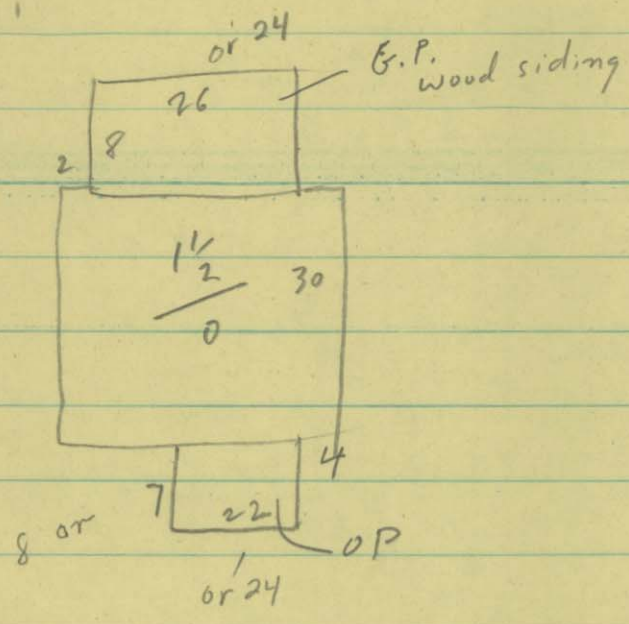 or 24
E.P.
wood siding
26
8
2
1 1/2
30
0
4
7
22
8 or
OP
or 24